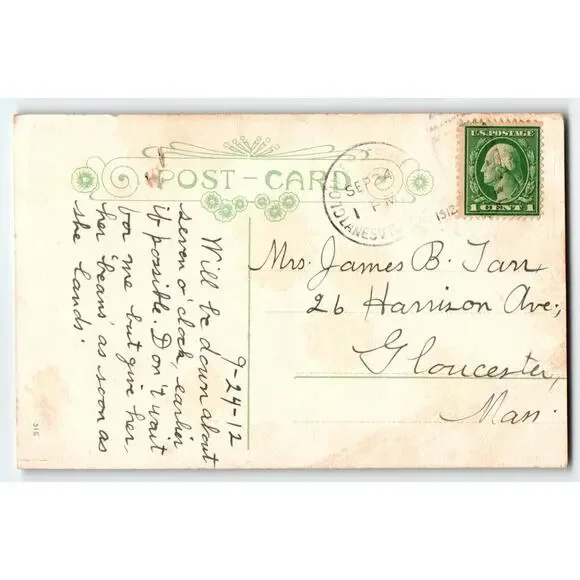 POST-CARD
U.S. POSTAGE
1 CENT 1
SEP 24
1 PM
1912
Mrs. James B. Tarr
26 Harrison Ave.,
Gloucester,
Mass.
9-24-12
Will be down about
seven o'clock, earlier
if possible. Don't wait
for me but give her,
her "beans" as soon as
she lands.
316